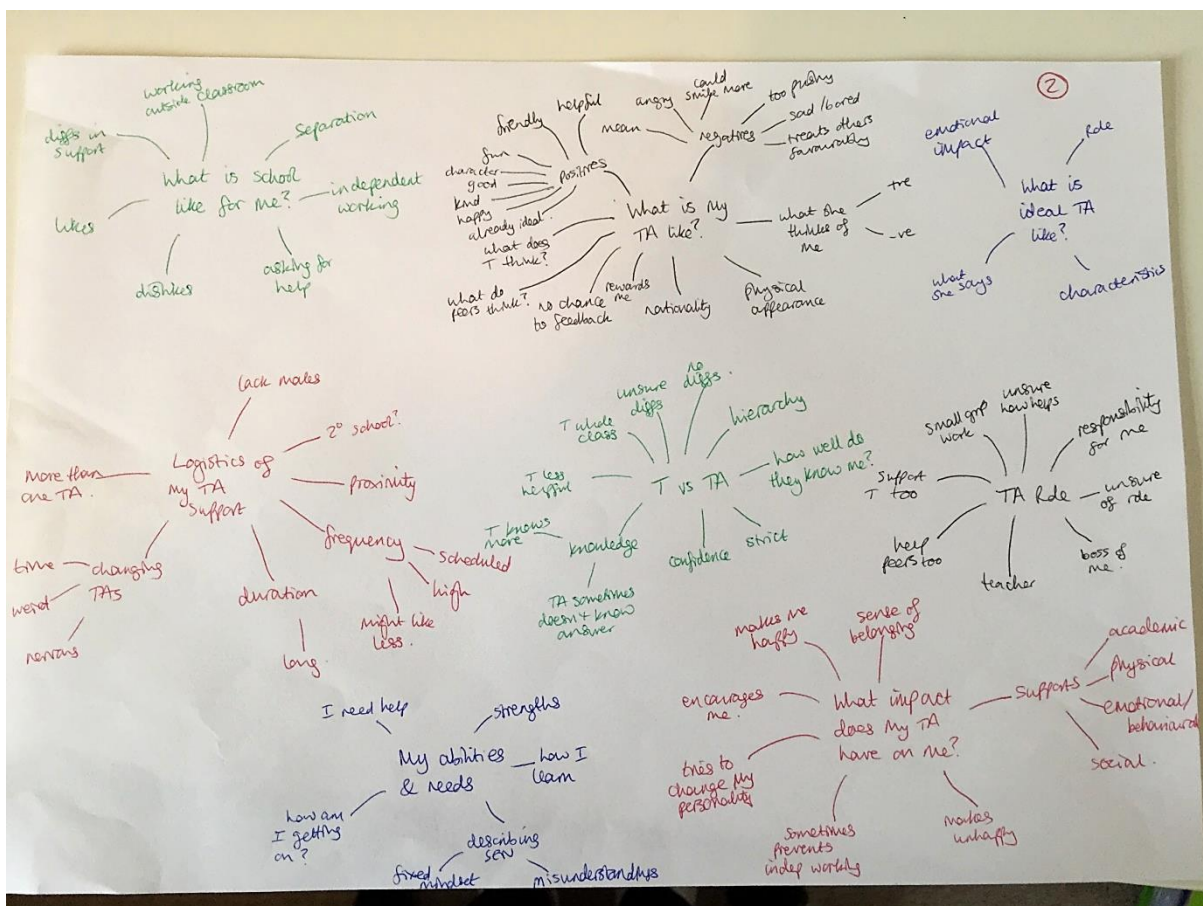 2
working
outside classroom
diffs in
support
separation
What is school
like for me?
independent
working
likes
dislikes
asking for
help
What is my
TA like?
positives
helpful
friendly
fun
character
good
kind
happy
already ideal.
what does
T think?
what do
peers think?
no chance
to feedback
rewards
me
nationality
physical
appearance
what she
thinks of
me
+ve
-ve
negatives
mean
angry
could
smile more
too pushy
sad/bored
treats others
favourably
What is
ideal TA
like?
emotional
impact
Role
what
she says
characteristics
Logistics of
my TA
support
lack males
2° school?
proximity
frequency
scheduled
high
might like
less.
duration
long.
changing
TAs
time
weird
nervous
more than
one TA.
T vs TA
T whole
class
unsure
diffs
no
diffs.
hierarchy
how well do
they know me?
strict
confidence
knowledge
T knows
more
TA sometimes
doesn't know
answer
T less
helpful
TA Role
small grp
work
unsure
how helps
responsibility
for me
unsure
of role
boss of
me.
teacher
help
peers too
support
T too
My abilities
& needs
I need help
strengths
how I
learn
describing
SEN
fixed
mindset
misunderstandings
how am
I getting
on?
What impact
does my TA
have on me?
makes me
happy
sense of
belonging
supports
academic
physical
emotional/
behavioural
social.
makes
unhappy
sometimes
prevents
indep working
tries to
change my
personality
encourages
me.